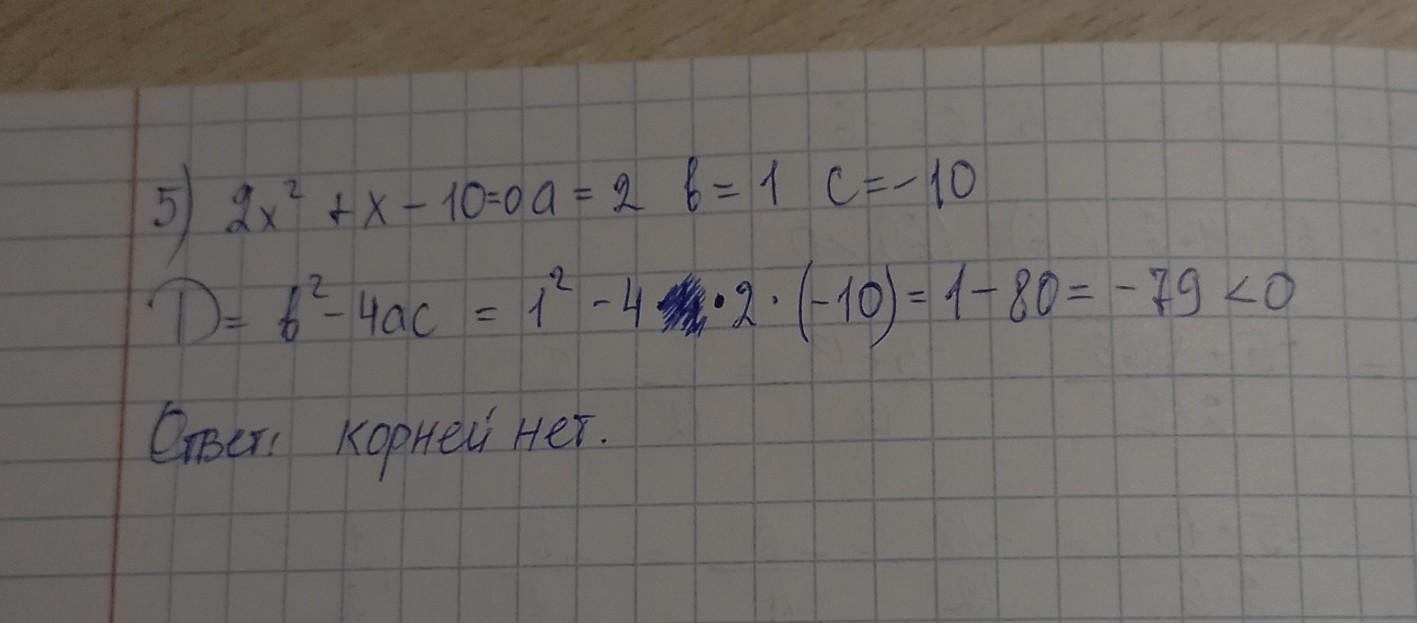 5) 2x² + x - 10=0 a = 2 b = 1 c = -10
D = b² - 4ac = 1² - 4 · 2 · (-10) = 1 - 80 = -79 < 0
Ответ: корней нет.